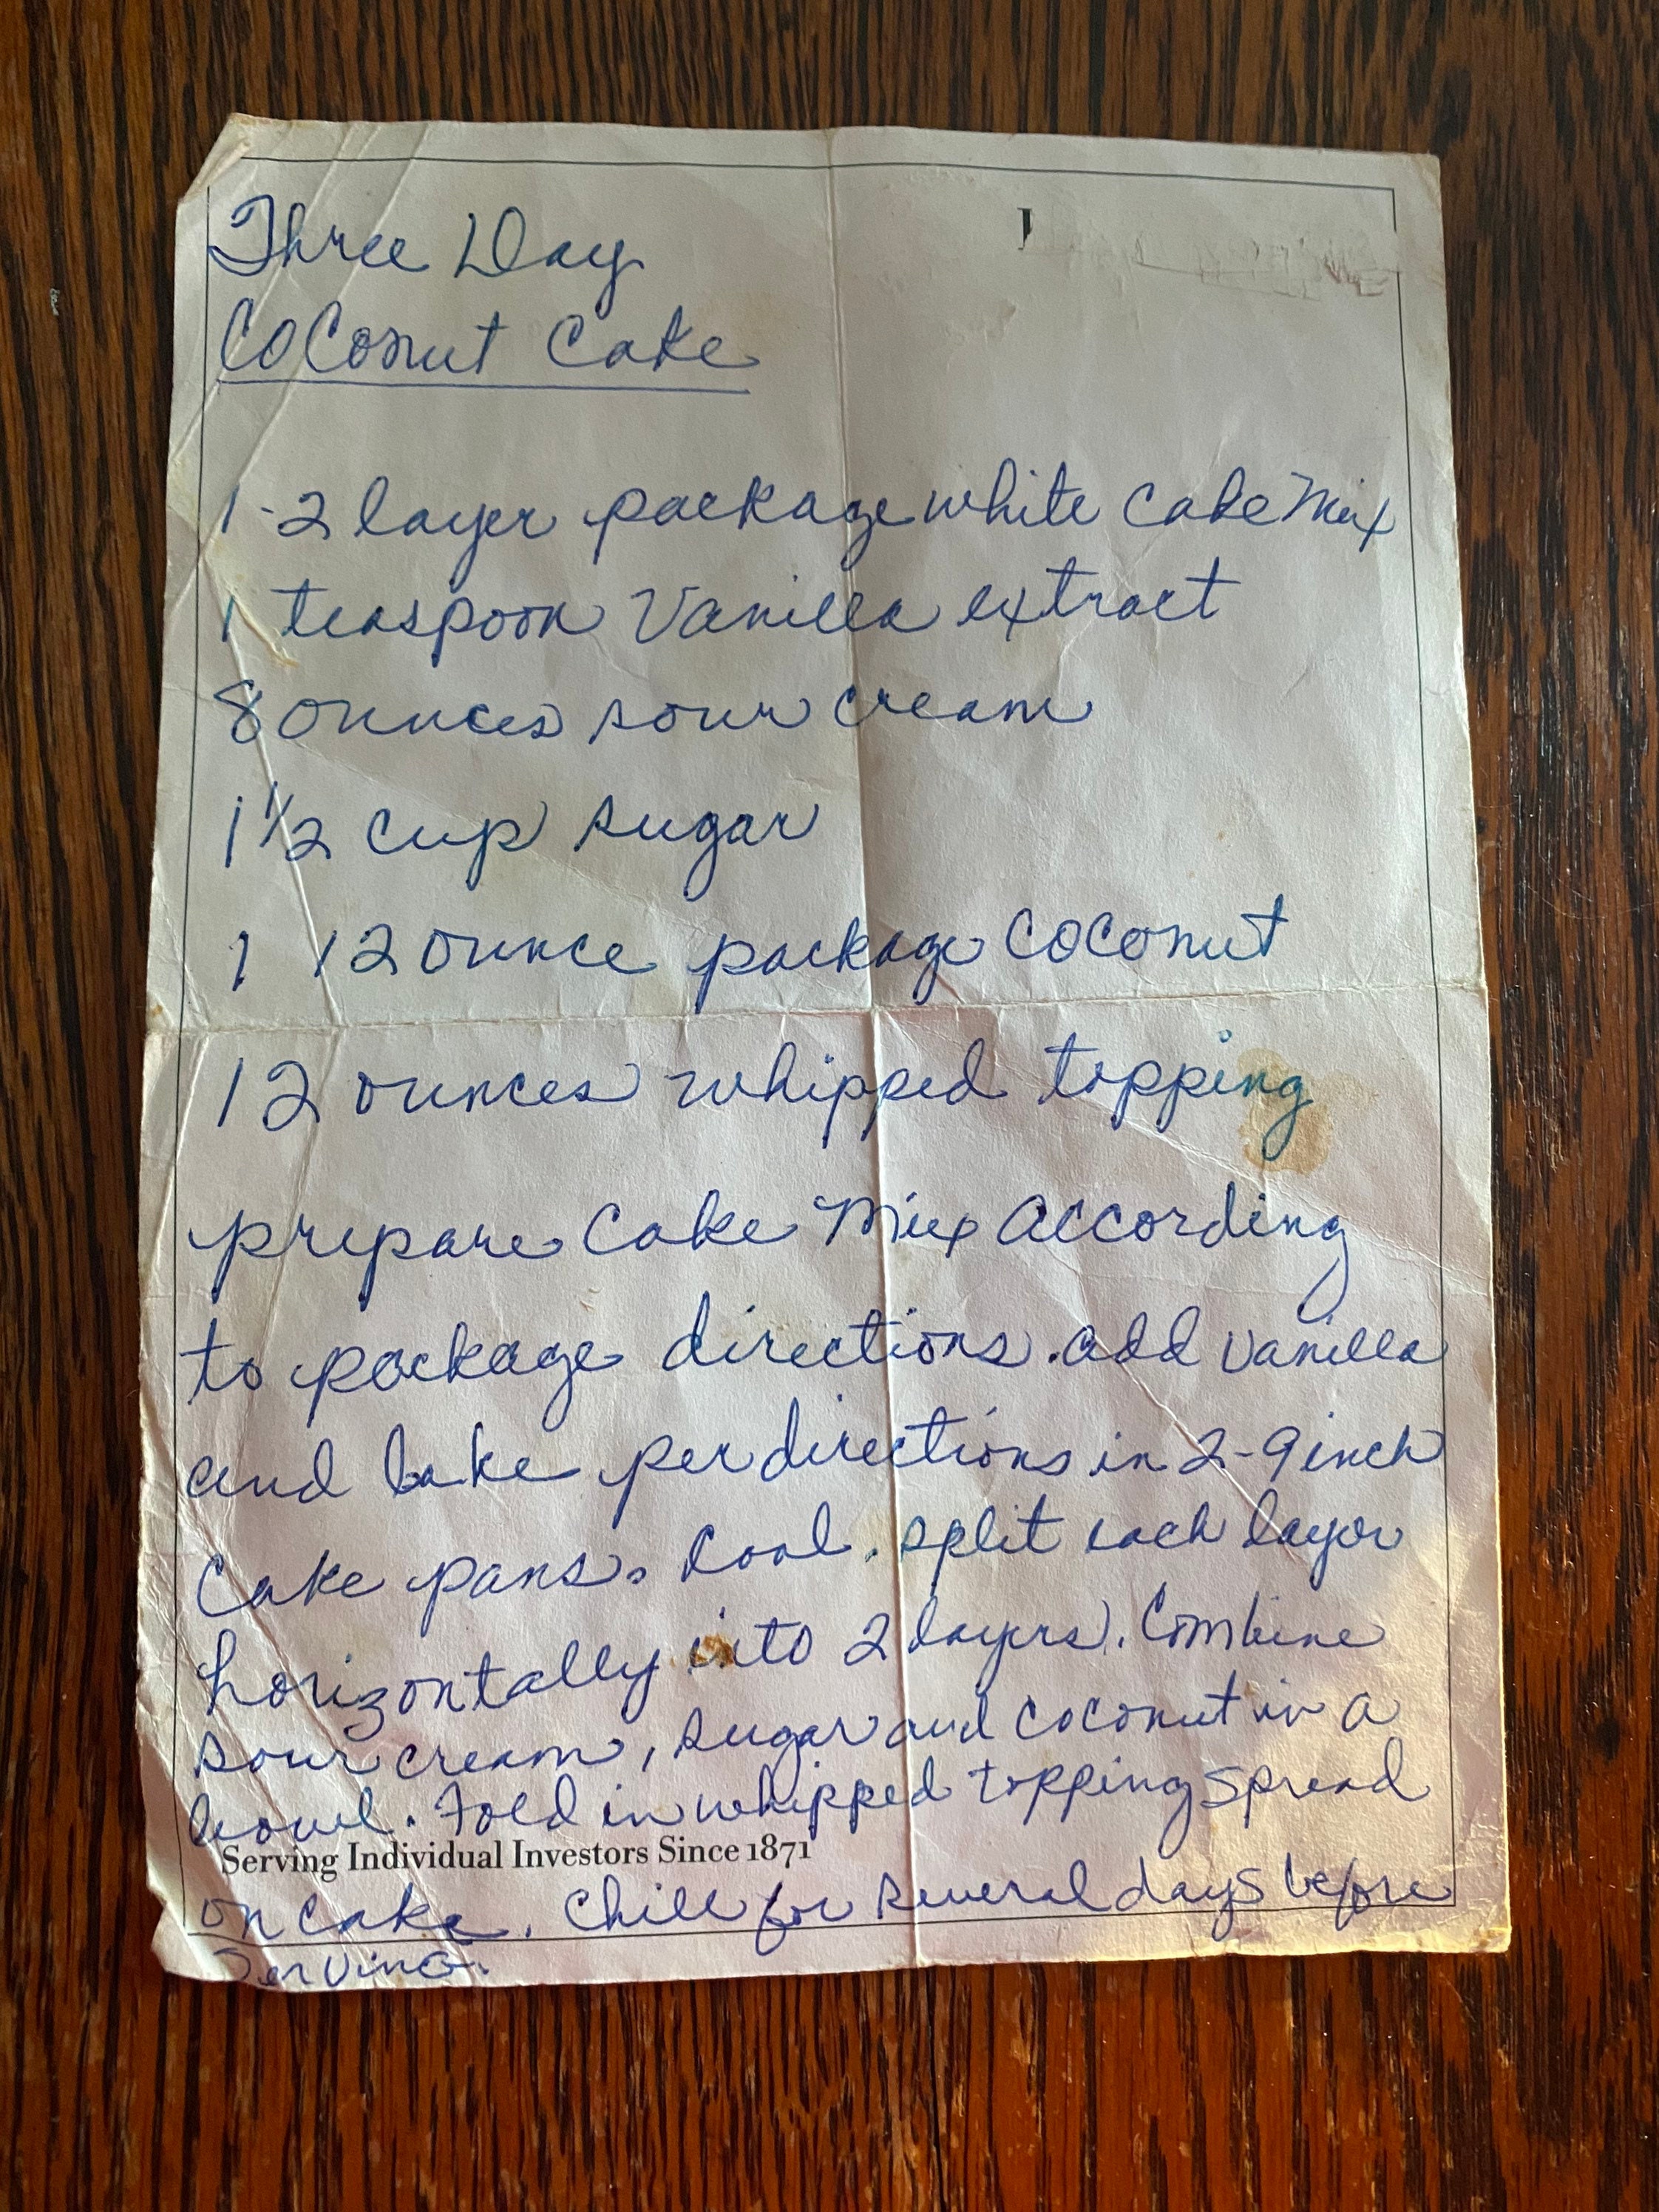 Three Day
Coconut Cake
1-2 layer package white cake mix
1 teaspoon vanilla extract
8 ounces sour cream
1 1/2 cup sugar
1 12 ounce package coconut
12 ounces whipped topping
prepare cake mix according
to package directions. add vanilla
and bake per directions in 2-9 inch
cake pans. Cool. split each layer
horizontally into 2 layers. Combine
sour cream, sugar and coconut in a
bowl. Fold in whipped topping spread
Serving Individual Investors Since 1871
on cake. Chill for several days before
Serving.